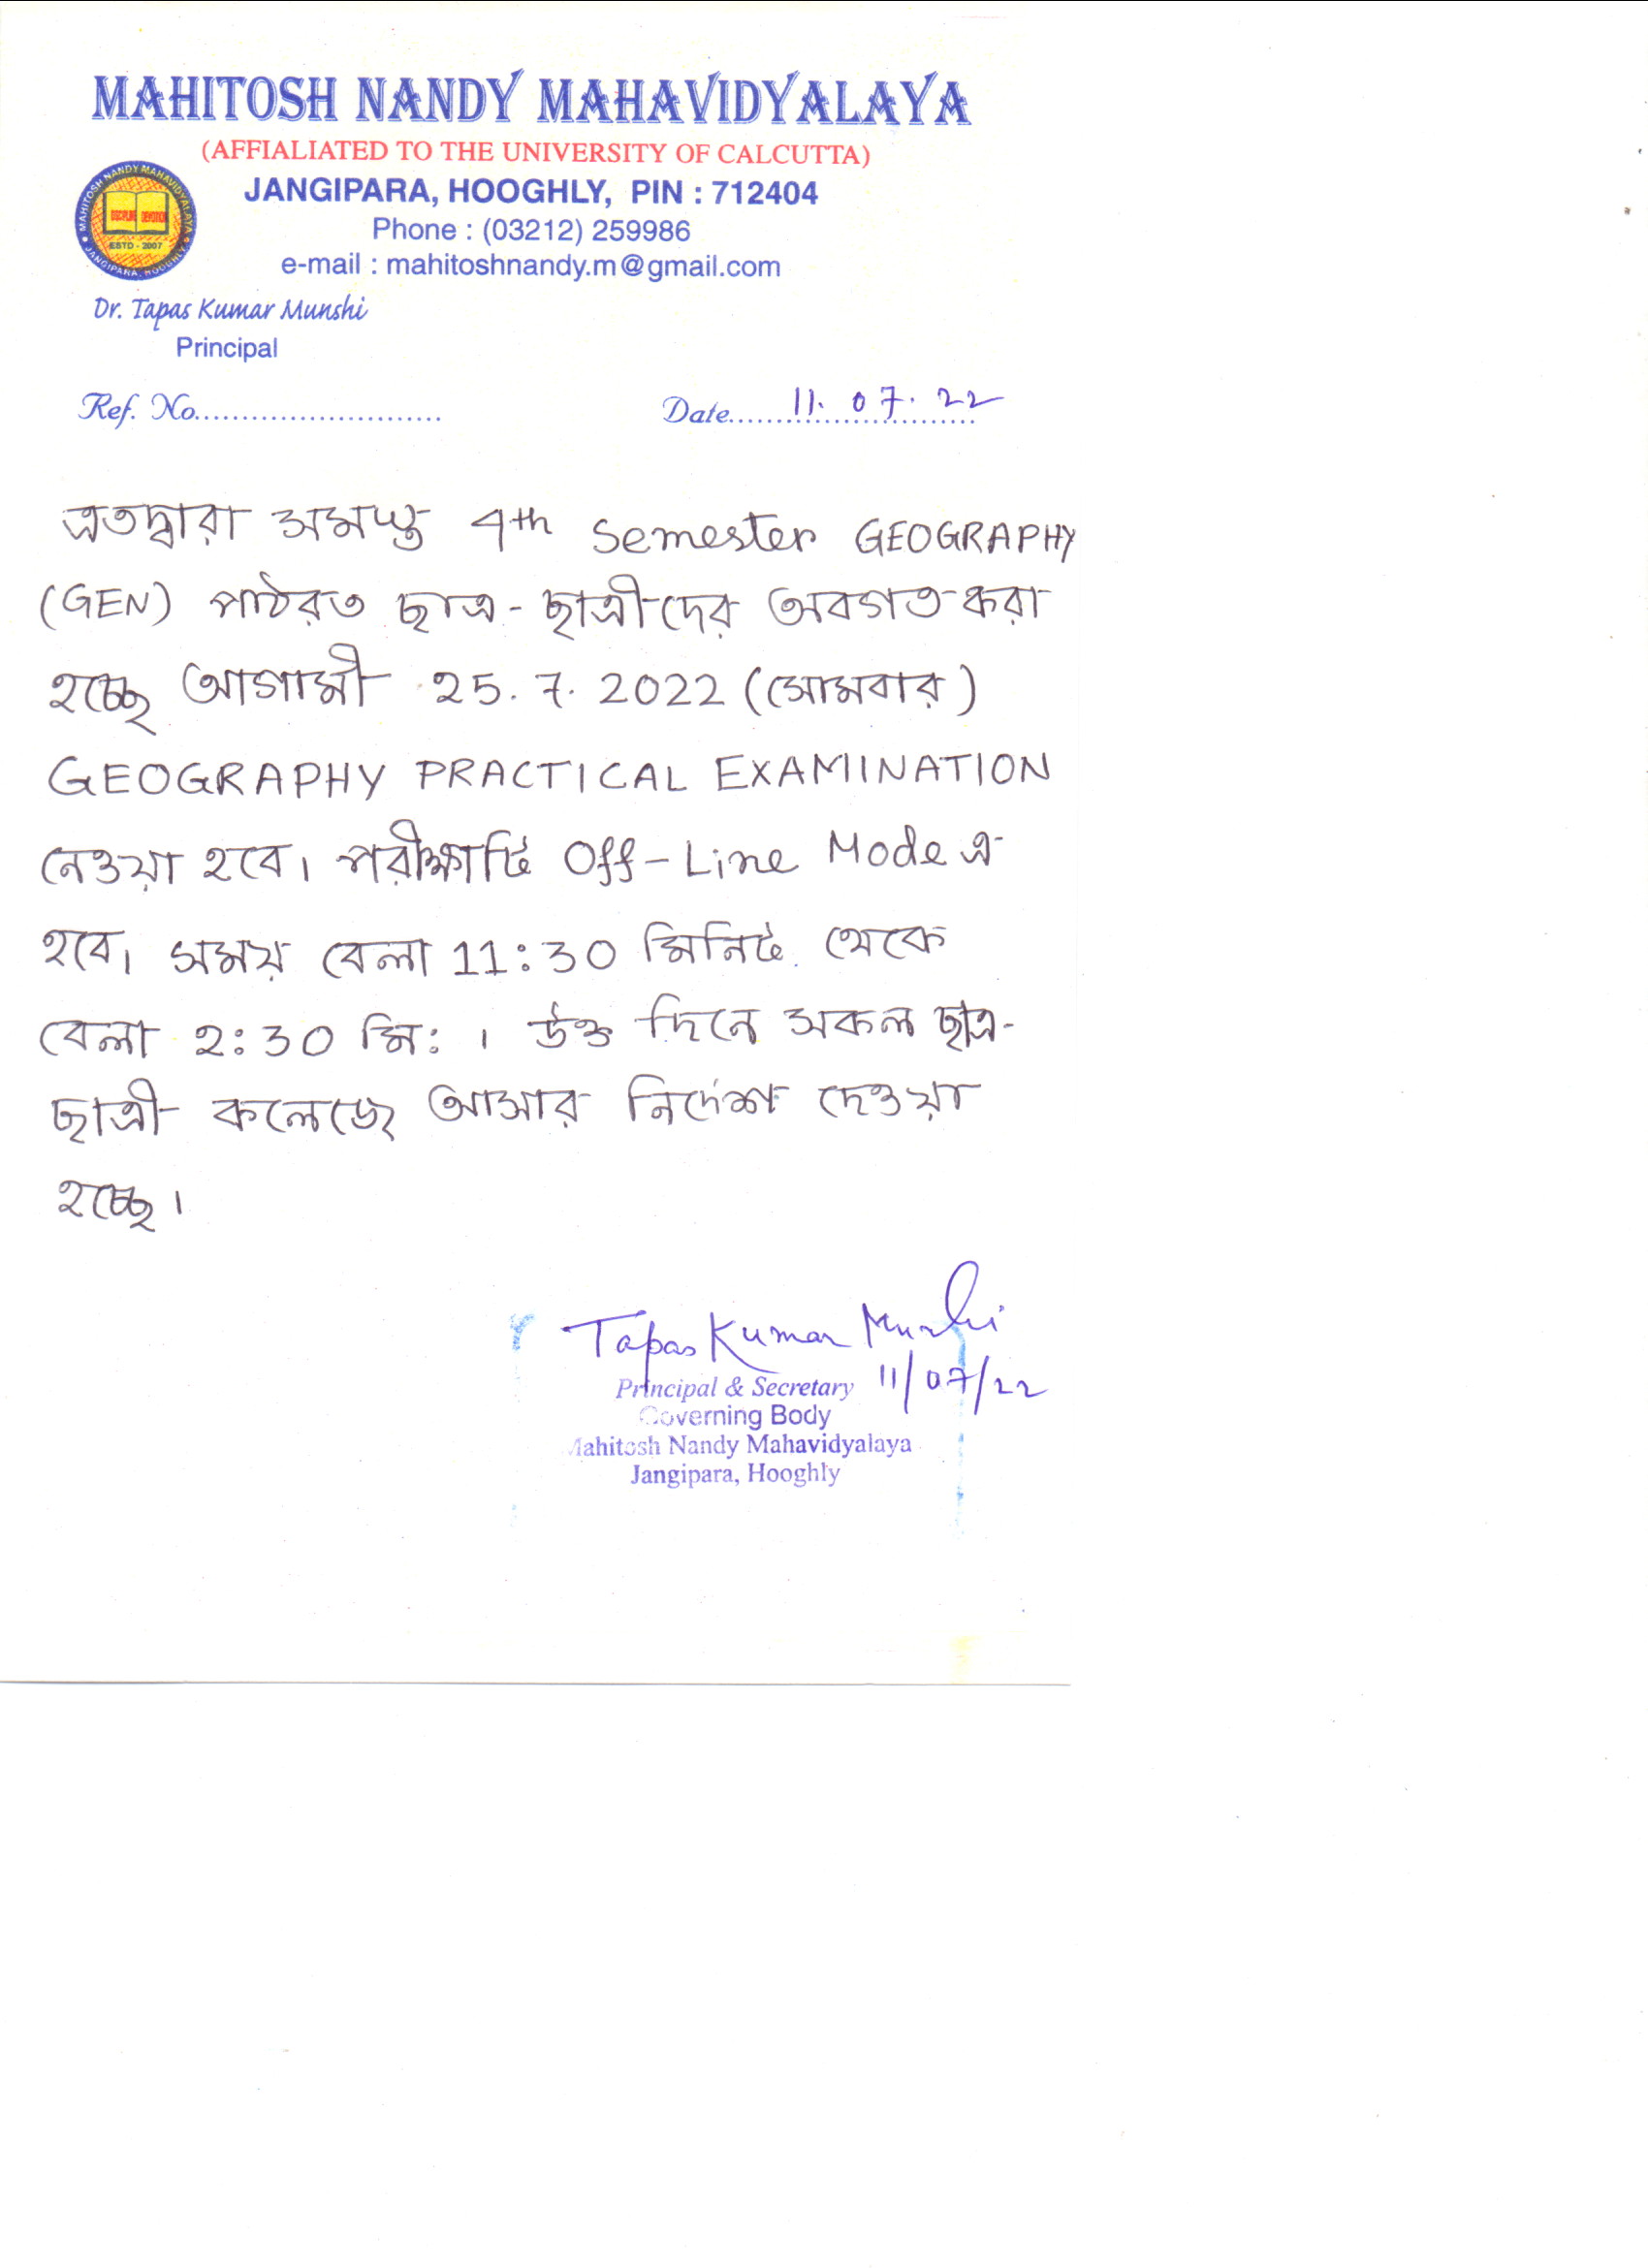 MAHITOSH NANDY MAHAVIDYALAYA
(AFFIALIATED TO THE UNIVERSITY OF CALCUTTA)
JANGIPARA, HOOGHLY, PIN : 712404
Phone : (03212) 259986
e-mail : mahitoshnandy.m@gmail.com
MAHITOSH NANDY MAHAVIDYALAYA
DISCIPLINE DEVOTION
ESTD - 2007
JANGIPARA, HOOGHLY
Dr. Tapas Kumar Munshi
Principal
Ref. No.......................... Date.......11.07.22
এতদ্বারা সমস্ত 4th Semester GEOGRAPHY
(GEN) পাঠরত ছাত্র-ছাত্রীদের অবগত করা
হচ্ছে আগামী 25.7.2022 (সোমবার)
GEOGRAPHY PRACTICAL EXAMINATION
নেওয়া হবে। পরীক্ষাটি Off-Line Mode এ
হবে। সময় বেলা 11:30 মিনিট থেকে
বেলা 2:30 মি: । উক্ত দিনে সকল ছাত্র-
ছাত্রী কলেজে আসার নির্দেশ দেওয়া
হচ্ছে।
Tapas Kumar Munshi
11/07/22
Principal & Secretary
Governing Body
Mahitosh Nandy Mahavidyalaya
Jangipara, Hooghly